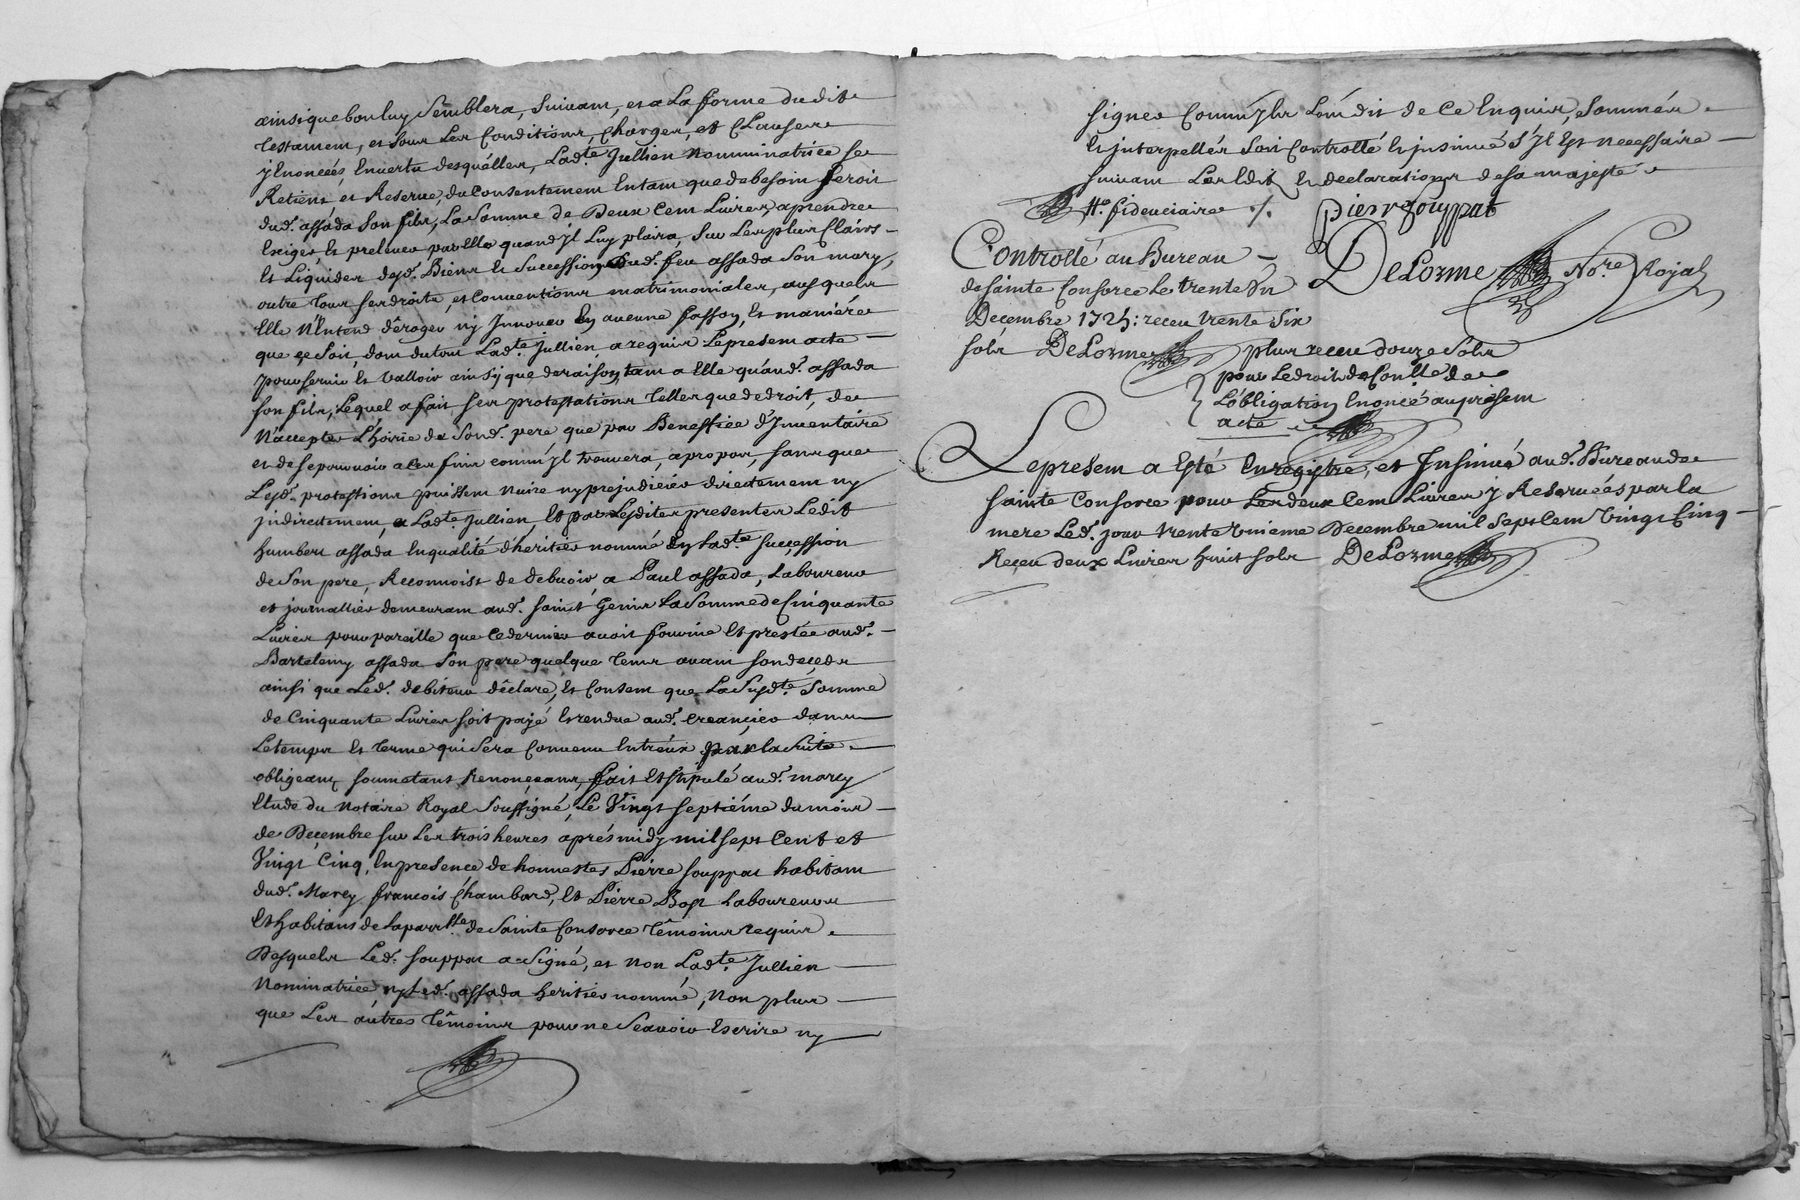 ainsi que bon luy Semblera, Suivant, et a La forme dudit
testament, et sous Les Conditions, Charges, et Clauses
y Enoncéés, En vertu desquélles, Lad.te Jullien nomminatrice se
Retient et Reserve, du Consentement En tant que de besoin seroit
dud. assada Son fils, La Somme de Deux Cent Livres, a prendre
Exiger, et prelever par Elle quand jl Luy plaira, Sur Les plus Clairs
Et Liquides desd. Biens et Succession dud. feu assada Son mary,
outre tous ses droits, et Conventions matrimoniales, ausquels
Elle N'Entend dêroger ny Jnnover En aucune fasson, Et maniére
que ce Soit, dont du tout Lad.te Jullien, a requis Le present acte
pour servir Et valloir ainsy que de raison, tant a Elle qu'aud. assada
son fils, Lequel a fait ses protestations telles que de droit, de
N'accepter L'hoirie de Sond. pere que par Beneffice d'Jnventaire
et de se pourvoir a ces fins comm'jl trouvera, a propos, sans que
Lesd. protestions puissent nuire ny prejudicier directement ny
jndirectement, a Lad.te Jullien, Et par Lesdites presentes Ledit
humbert assada En qualité d'heritier nommé En Lad.te succession
de Son pere, Reconnoist de debvoir a Paul assada, Laboureur
et journallier demeurant aud. saint Genis La Somme de Cinquante
Livres pour pareille que ce dernier avoit fournie Et prestée aud.
Bartelemy assada Son pere quelque tems avant son deçeds
ainsi que Led. debiteur dêclare, Et Consent que La Susd.te Somme
de Cinquante Livres soit payé Et rendue aud. creancier dans
Le temps Et terme qui Sera Convenu Entreux par la Suite
obligeant soumetant Renonçeant, fait Et stipulé aud. marcy
Etude du Notaire Royal Soussigné, Le Vingt septiéme du mois
de Decembre sur Les trois heures aprés midy mil sept Cent et
Vingt Cinq, En presence de honnestes Pierre souppat habitant
dud. Marcy françois Chambard, Et Pierre Bost Laboureurs
Et habitans de La parr.lle de Sainte Consorce têmoins requis
Desquels Led. souppat a Signé, et non Lad.te Jullien
Nominatrice ny Led. assada heritier nommé, non plus
que Les autres têmoins pour ne Scavoir Escrire ny
signer Comm'jls L'ont dit de Ce Enquis, Sommés
Et jnterpellés Soit Controllé Et jnsinué s'jl Est necessaire
suivant Les Edits Et declarations de Sa majesté
H.e fideuciaire ./.
Pierre Souppat
Controllé au Bureau
DeLorme No.re Royal
de Sainte Consorce Le trente Un
Decembre 1725: receu trente Six
sols DeLorme
plus receu douze Sols
pour Le droit de Con.lle de
L'obligation Enoncé au present
acte
Le present a Esté Enregistré, et Jnsinué aud. Bureau de
sainte Consorce pour Les deux Cent Livres y Reservéés par la
mere Led. jour trente Unieme Decembre mil Sept Cent Vingt Cinq
Receu deux Livres huit sols DeLorme